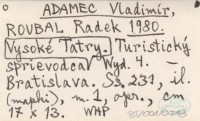 ADAMEC Vladimír,
ROUBAL Radek 1980.
Vysoké Tatry. Turistický
sprievodca. Vyd. 4. -
Bratislava. Ss. 231, il
(mapki), m. 1, opr., cm
17 x 13. WHP